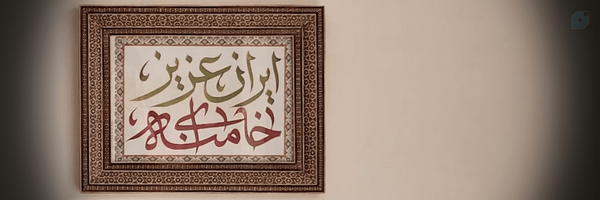 ایران عزیز
خامنه‌ای